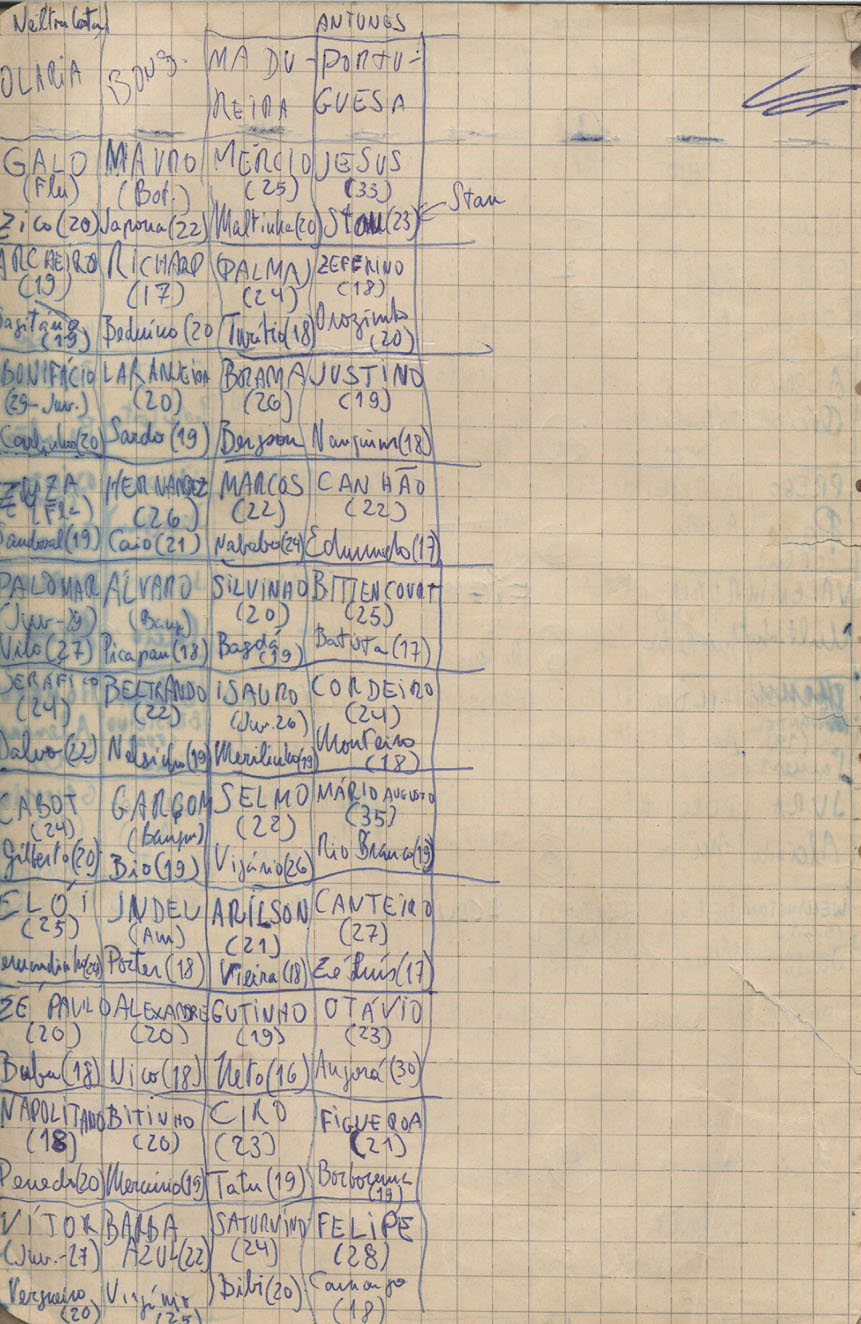 ANTUNES
OLARIA BONS. MADU- PORTU-
REIRA GUESA
GALO MAURO MÉRCIO JESUS
(Flu) (Bot.) (25) (33)
Zico(20) Japona(22) Maltinha(20) Stau(23) Stau
ARCHEIRO RICHARD (PALMA) ZEFERINO
(19) (17) (24) (18)
Sagitário Beduino(20 Turítio(18) Orozimbo
(19) (20)
BONIFÁCIO LARANJEIRA BORAMA JUSTINO
(29-Juv.) (20) (26) (19)
Carlinhos(20 Sardo(19) Bergson Nanquim(18)
ZUZA HERNANDEZ MARCOS CANHÃO
(Flu (26) (22) (22)
Sandoval(19) Caio(21) Nababo(24) Edmundo(17)
PALOMAR ÁLVARO SILVINHO BITTENCOURT
(Juv-29) (Bang) (20) (25)
Vito(27) Picapau(18) Bagdá(19) Batista(17)
SERAFICO BELTRANDO ISAURO CORDEIRO
(24) (22) (Juv.26) (24)
Dalvo(22) Nelsinho(19) Merilinho(19) Monteiro
(18)
CABOT GARÇOM SELMO MÁRIO AUGUSTO
(24) (bangu) (22) (35)
Gilberto(20) Bio(19) Vigário(26) Rio Branco(19)
ELÓI INDEU ARÍLSON CANTEIRO
(25) (Am) (21) (27)
Porter(18) Vieira(18) Zé Luís(17)
ZÉ PAULO ALEXANDRE GUTINHO OTÁVIO
(20) (20) (19) (23)
Buba(18) Nico(18) Neto(16) Angorá(30)
NAPOLITANO BITINHO CIRO FIGUEROA
(18) (20) (23) (21)
Penedo(20) Mercúrio(19) Tatu(19) Borborema
(19)
VÍTOR BARBA SATURNINO FELIPE
(Juv.-27) AZUL(22) (24) (28)
Vergueiro Virgínio Bibi(20) Camargo
(20) (25) (18)